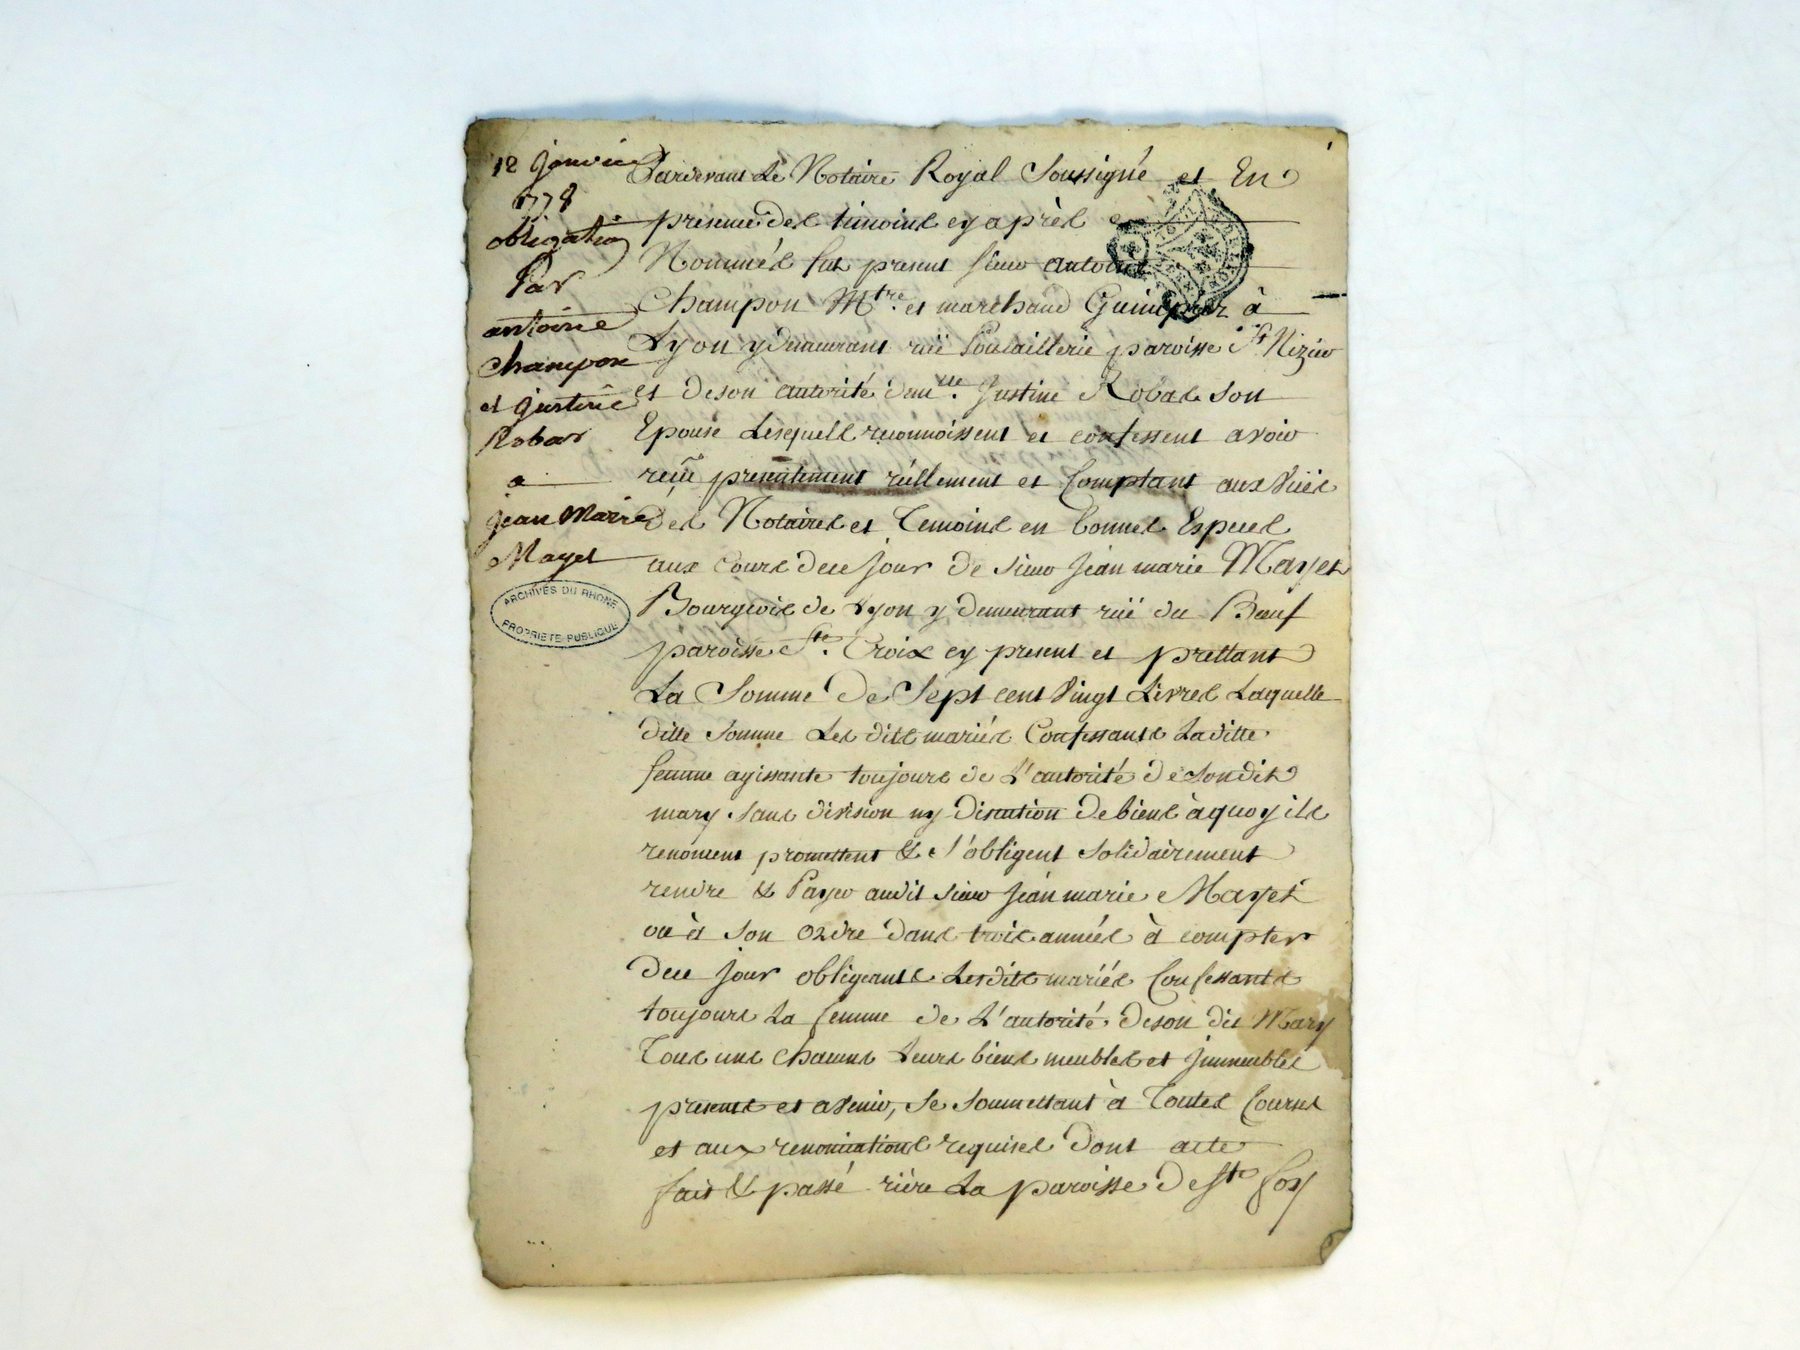 12 Janvier
1778
obligation
Par
antoine
Champon
et Justine
Robar
a
jean Marie
Mayet
ARCHIVES DU RHONE
PROPRIETE PUBLIQUE
Pardevant Le Notaire Royal Soussigné et En
presence des temoins cy après
Nommés fut present sieur antoine
Champon Mtre. et marchand Guimpier à
Lyon y demeurant rüe Poulaillerie paroisse St Nizier
et de son autorité demlle. Justine Robas son
Epouse Lesquels reconnoissent et confessent avoir
reçu presentement réellement et Comptant aux Vües
des Notaires et Temoins en bonnes Especes
aux Cours de ce jour de sieur jean marie Mayet
Bourgeois de Lyon y demeurant rüe du Bœuf
paroisse Ste. Croix cy present et prettant
La Somme De Sept cent Vingt Livres Laquelle
ditte somme Les dits mariés Confessants Laditte
femme agissante toujours de L'autorité de Sondit
mary sans division ny discution de biens à quoy ils
renoncent promettent & s'obligent solidairement
rendre & Payer audit sieur jean marie Mayet
ou à son Ordre dans trois années à compter
de ce jour obligeants Lesdits mariés Confessants
toujours La femme de L'autorité de son dit Mary
Tous uns chacuns Leurs biens meubles et jmmeubles
presents et avenir, se soumettant à Toutes Cours
et aux renonciations requises Dont acte
fait & passé rière La paroisse De Ste foy